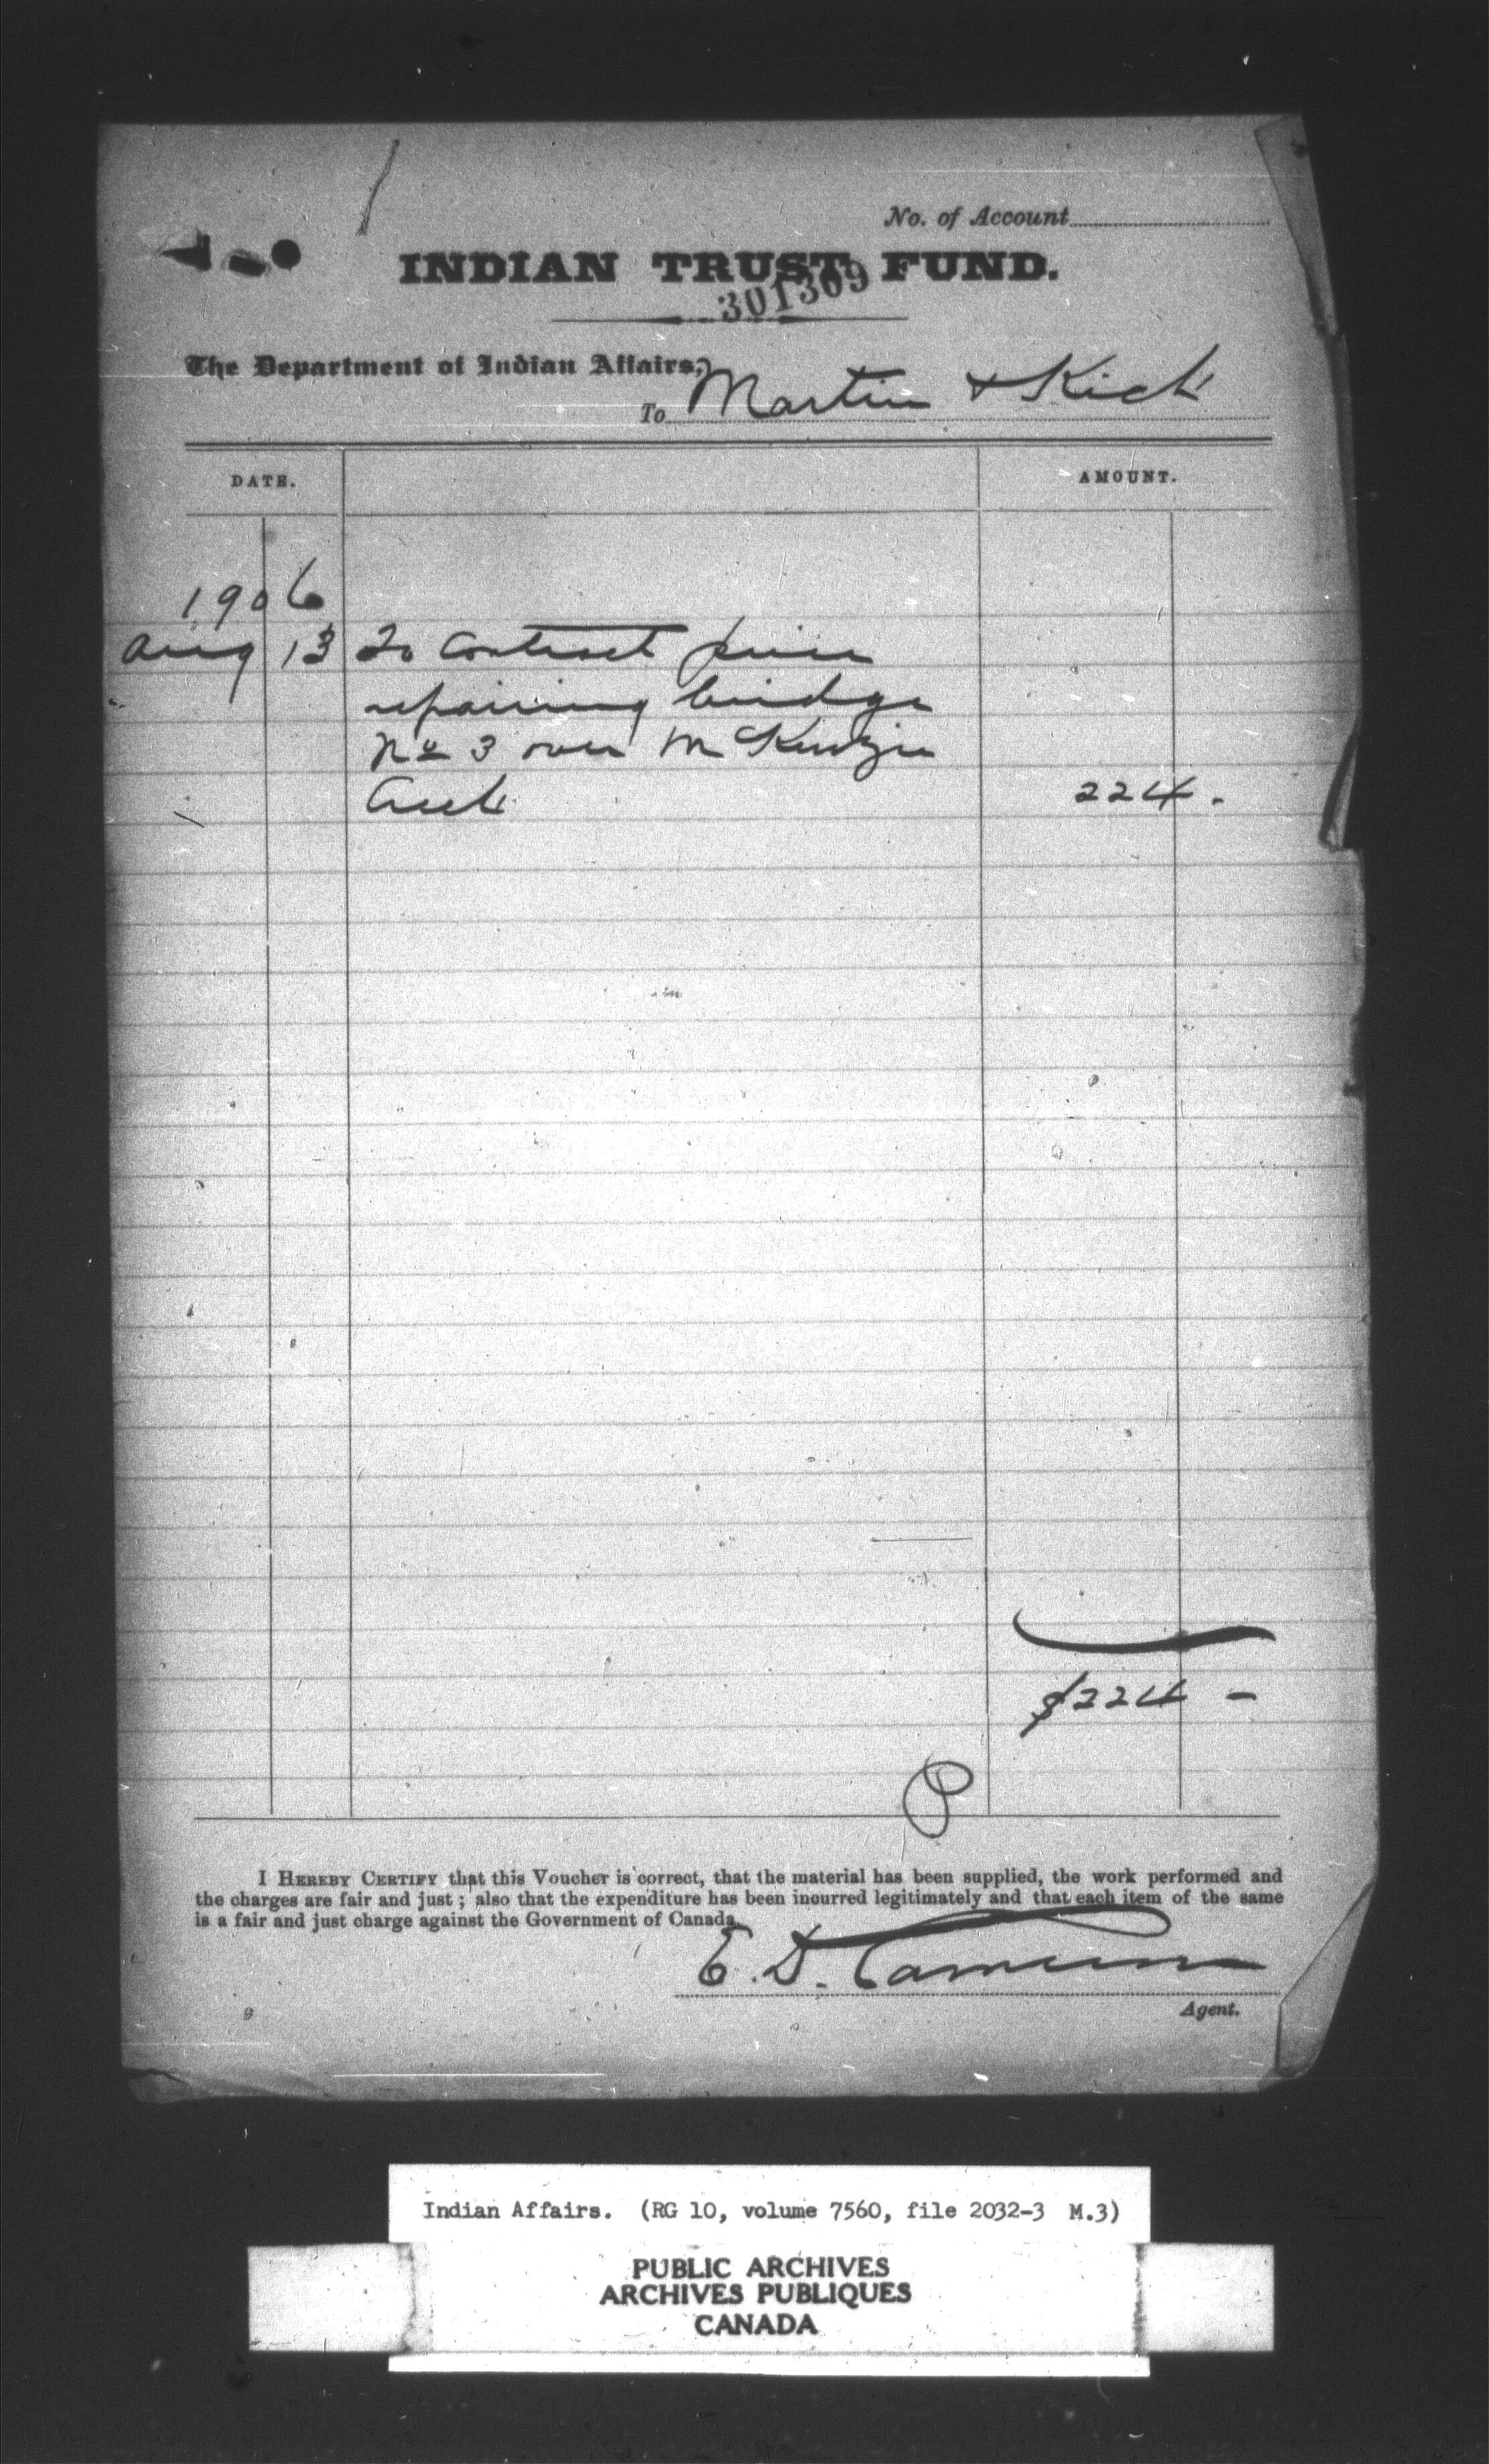 No. of Account
INDIAN TRUST FUND.
301309
The Department of Indian Affairs,
To Martin & Kick
DATE.
AMOUNT.
1906
Aug 13 To Contract price
repairing bridge
No 3 over McKenzie
Creek 224.
$224 -
P
I HEREBY CERTIFY that this Voucher is correct, that the material has been supplied, the work performed and
the charges are fair and just; also that the expenditure has been incurred legitimately and that each item of the same
is a fair and just charge against the Government of Canada.
E. D. Cameron
Agent.
Indian Affairs. (RG 10, volume 7560, file 2032-3 M.3)
PUBLIC ARCHIVES
ARCHIVES PUBLIQUES
CANADA